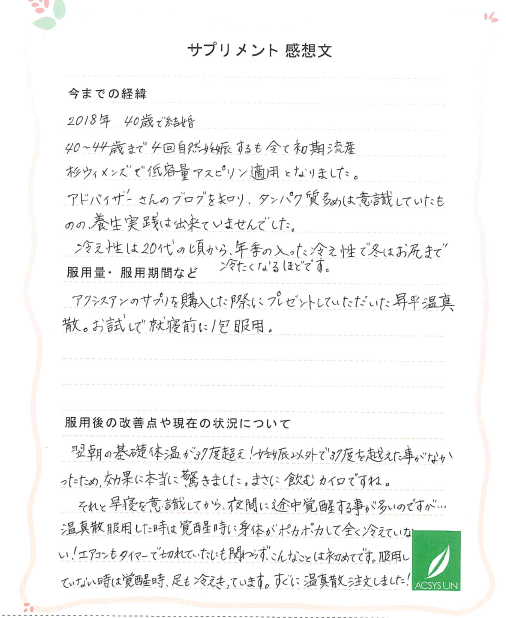 サプリメント 感想文
今までの経緯
2018年 40歳で結婚
40〜44歳まで4回自然妊娠するも全て初期流産
杉ウィメンズで低容量アスピリン適用となりました。
アドバイザーさんのブログを知り、タンパク質多めは意識していたも
のの、養生実践は出来ていませんでした。
冷え性は20代の頃から、年季の入った冷え性で冬はお尻まで
冷たくなるほどです。
服用量・服用期間など
アクシスアンのサプリを購入した際にプレゼントしていただいた昇平温真
散。お試しで就寝前に1包服用。
服用後の改善点や現在の状況について
翌朝の基礎体温が37度超え!妊娠以外で37度を越えた事がなか
ったため、効果に本当に驚きました。まさに飲むカイロですね。
それと早寝を意識してから、夜間に途中覚醒する事が多いのですが…
温真散服用した時は覚醒時に身体がポカポカして全く冷えていな
い!エアコンもタイマーで切れていたにも関わらず、こんなことは初めてです。服用し
ていない時は覚醒時、足も冷えきっています。すぐに温真散注文しました!
ACSYSUN